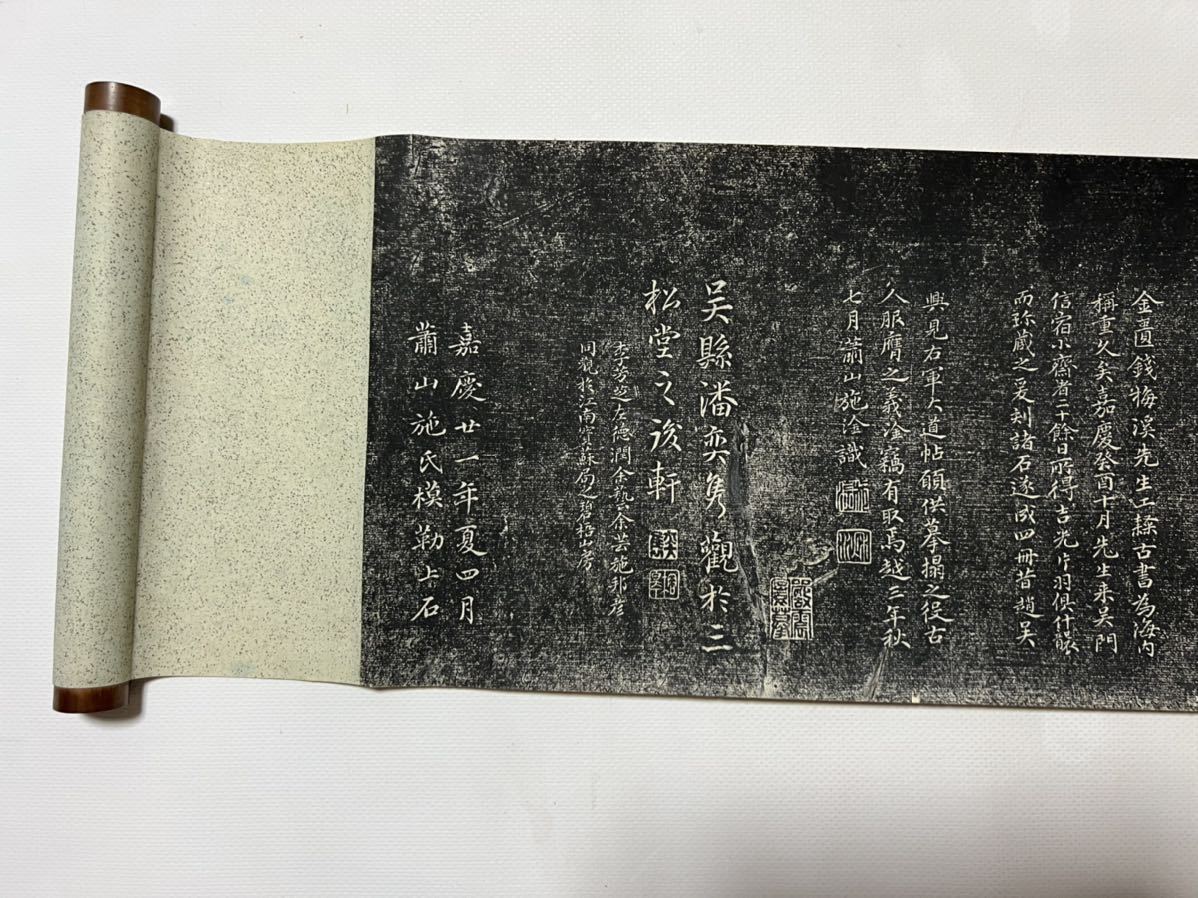 金匱錢梅溪先生工隸古書為海內
稱重久矣嘉慶癸酉十月先生來吳門
信宿小齋者二十餘日所得吉光片羽俱什襲
而珍藏之爰刻諸石遂成四冊昔趙吳
興見右軍大道帖願供摹搨之役古
人服膺之義淦竊有取焉越三年秋
七月蕭山施淦識
吳縣潘奕雋觀於三
松堂之後軒
左德潤余執余芸施邦彥
同觀於江南之碧梧山房
嘉慶廿一年夏四月
蕭山施氏模勒上石